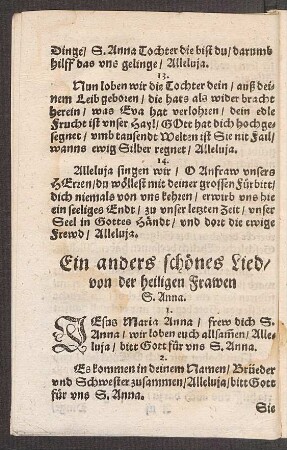 Dinge/ S. Anna Tochter die bist du/ darumb
hilff das vns gelinge/ Alleluja.
13.
Nun loben wir die Tochter dein/ auß dei-
nem Leib geboren/ die hats als wider bracht
herein/ was Eva hat verlohren/ dein edle
Frucht ist vnser Hayl/ GOtt hat dich hochge-
segnet/ vmb tausend Welten ist Sie nit Fail/
wanns ewig Silber regnet/ Alleluja.
14.
Alleluja singen wir/ O Anfraw vnsers
HErren/ du wöllest mit deiner grossen Fürbitt/
dich niemals von vns kehren/ erwürb vns hie
ein seeliges Endt/ zu vnser letzten Zeit/ vnser
Seel in Gottes Händt/ vnd dort die ewige
Frewd/ Alleluja.
Ein anders schönes Lied/
von der heiligen Frawen
S. Anna.
1.
JEsus Maria Anna/ frew dich S.
Anna/ wir loben euch allsam̃en/ Alle-
luja/ bitt Gott für vns S. Anna.
2.
Es kommen in deinem Namen/ Brüeder
vnd Schwester zusammen/ Alleluja/ bitt Gott
für vns S. Anna.
Sie